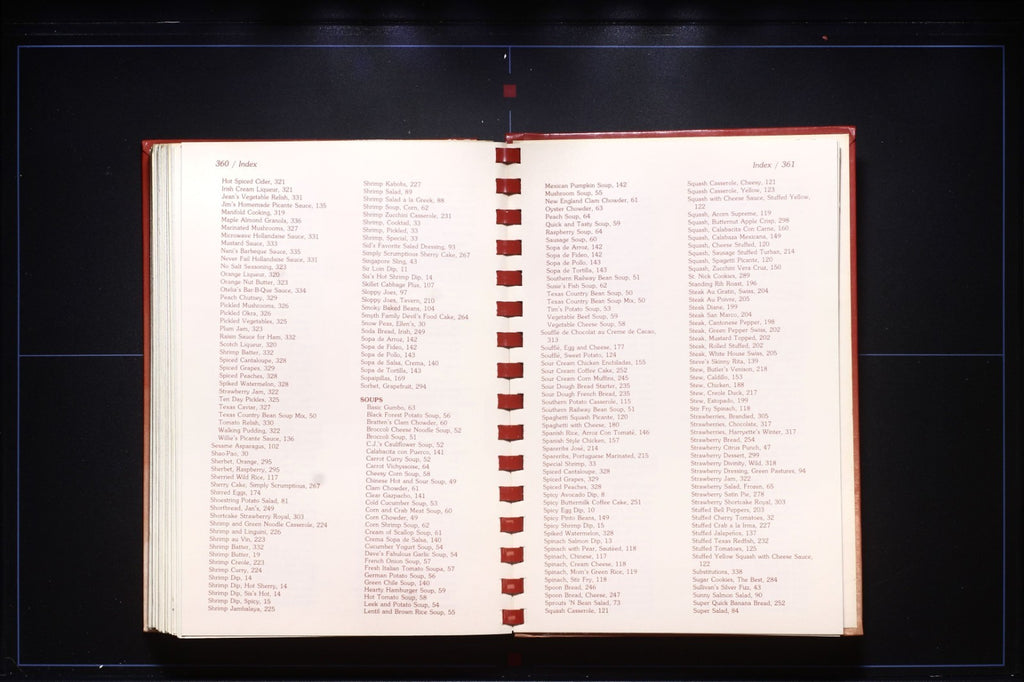 360 / Index
Hot Spiced Cider, 321
Irish Cream Liqueur, 321
Jean's Vegetable Relish, 331
Jim's Homemade Picante Sauce, 135
Manifold Cooking, 319
Maple Almond Granola, 336
Marinated Mushrooms, 327
Microwave Hollandaise Sauce, 331
Mustard Sauce, 333
Nani's Barbeque Sauce, 335
Never Fail Hollandaise Sauce, 331
No Salt Seasoning, 323
Orange Liqueur, 320
Orange Nut Butter, 323
Otelia's Bar-B-Que Sauce, 334
Peach Chutney, 329
Pickled Mushrooms, 326
Pickled Okra, 326
Pickled Vegetables, 325
Plum Jam, 323
Raisin Sauce for Ham, 332
Scotch Liqueur, 320
Shrimp Batter, 332
Spiced Cantaloupe, 328
Spiced Grapes, 329
Spiced Peaches, 328
Spiked Watermelon, 328
Strawberry Jam, 322
Ten Day Pickles, 325
Texas Caviar, 327
Texas Country Bean Soup Mix, 50
Tomato Relish, 330
Walking Pudding, 322
Willie's Picante Sauce, 136
Sesame Asparagus, 102
Shao-Pao, 30
Sherbet, Orange, 295
Sherbet, Raspberry, 295
Sherried Wild Rice, 117
Sherry Cake, Simply Scrumptious, 267
Shirred Eggs, 174
Shoestring Potato Salad, 81
Shortbread, Jan's, 249
Shortcake Strawberry Royal, 303
Shrimp and Green Noodle Casserole, 224
Shrimp and Linguini, 226
Shrimp au Vin, 223
Shrimp Batter, 332
Shrimp Butter, 19
Shrimp Creole, 223
Shrimp Curry, 224
Shrimp Dip, 14
Shrimp Dip, Hot Sherry, 14
Shrimp Dip, Sis's Hot, 14
Shrimp Dip, Spicy, 15
Shrimp Jambalaya, 225
Shrimp Kabobs, 227
Shrimp Salad, 89
Shrimp Salad a la Greek, 88
Shrimp Soup, Corn, 62
Shrimp Zucchini Casserole, 231
Shrimp, Cocktail, 33
Shrimp, Pickled, 33
Shrimp, Special, 33
Sid's Favorite Salad Dressing, 93
Simply Scrumptious Sherry Cake, 267
Singapore Sling, 43
Sir Loin Dip, 11
Sis's Hot Shrimp Dip, 14
Skillet Cabbage Plus, 107
Sloppy Joes, 97
Sloppy Joes, Tavern, 210
Smoky Baked Beans, 104
Smyth Family Devil's Food Cake, 264
Snow Peas, Ellen's, 30
Soda Bread, Irish, 249
Sopa de Arroz, 142
Sopa de Fideo, 142
Sopa de Pollo, 143
Sopa de Salsa, Crema, 140
Sopa de Tortilla, 143
Sopaipillas, 169
Sorbet, Grapefruit, 294
SOUPS
Basic Gumbo, 63
Black Forest Potato Soup, 56
Bratten's Clam Chowder, 60
Broccoli Cheese Noodle Soup, 52
Broccoli Soup, 51
C.J.'s Cauliflower Soup, 52
Calabacita con Puerco, 141
Carrot Curry Soup, 52
Carrot Vichyssoise, 64
Cheesy Corn Soup, 58
Chinese Hot and Sour Soup, 49
Clam Chowder, 61
Clear Gazpacho, 141
Cold Cucumber Soup, 53
Corn and Crab Meat Soup, 60
Corn Chowder, 49
Corn Shrimp Soup, 62
Cream of Scallop Soup, 61
Crema Sopa de Salsa, 140
Cucumber Yogurt Soup, 54
Dave's Fabulous Garlic Soup, 54
French Onion Soup, 57
Fresh Italian Tomato Soupa, 57
German Potato Soup, 56
Green Chile Soup, 140
Hearty Hamburger Soup, 59
Hot Tomato Soup, 58
Leek and Potato Soup, 54
Lentil and Brown Rice Soup, 55
Index / 361
Mexican Pumpkin Soup, 142
Mushroom Soup, 55
New England Clam Chowder, 61
Oyster Chowder, 63
Peach Soup, 64
Quick and Tasty Soup, 59
Raspberry Soup, 64
Sausage Soup, 60
Sopa de Arroz, 142
Sopa de Fideo, 142
Sopa de Pollo, 143
Sopa de Tortilla, 143
Southern Railway Bean Soup, 51
Susie's Fish Soup, 62
Texas Country Bean Soup, 50
Texas Country Bean Soup Mix, 50
Tim's Potato Soup, 53
Vegetable Beef Soup, 59
Vegetable Cheese Soup, 58
Souffle de Chocolat au Creme de Cacao,
313
Soufflé, Egg and Cheese, 177
Soufflé, Sweet Potato, 124
Sour Cream Chicken Enchiladas, 155
Sour Cream Coffee Cake, 252
Sour Cream Corn Muffins, 245
Sour Dough Bread Starter, 235
Sour Dough French Bread, 235
Southern Potato Casserole, 115
Southern Railway Bean Soup, 51
Spaghetti Squash Picante, 120
Spaghetti with Cheese, 180
Spanish Rice, Arroz Con Tomaté, 146
Spanish Style Chicken, 157
Spareribs José, 214
Spareribs, Portuguese Marinated, 215
Special Shrimp, 33
Spiced Cantaloupe, 328
Spiced Grapes, 329
Spiced Peaches, 328
Spicy Avocado Dip, 8
Spicy Buttermilk Coffee Cake, 251
Spicy Egg Dip, 10
Spicy Pinto Beans, 149
Spicy Shrimp Dip, 15
Spiked Watermelon, 328
Spinach Salmon Dip, 13
Spinach with Pear, Sautéed, 118
Spinach, Chinese, 117
Spinach, Cream Cheese, 118
Spinach, Mom's Green Rice, 119
Spinach, Stir Fry, 118
Spoon Bread, 246
Spoon Bread, Cheese, 247
Sprouts 'N Bean Salad, 73
Squash Casserole, 121
Squash Casserole, Cheesy, 121
Squash Casserole, Yellow, 123
Squash with Cheese Sauce, Stuffed Yellow,
122
Squash, Acorn Supreme, 119
Squash, Butternut Apple Crisp, 298
Squash, Calabacita Con Carne, 160
Squash, Calabaza Mexicana, 149
Squash, Cheese Stuffed, 120
Squash, Sausage Stuffed Turban, 214
Squash, Spagetti Picante, 120
Squash, Zucchini Vera Cruz, 150
St. Nick Cookies, 289
Standing Rib Roast, 196
Steak Au Gratin, Swiss, 204
Steak Au Poivre, 205
Steak Diane, 199
Steak San Marco, 204
Steak, Cantonese Pepper, 198
Steak, Green Pepper Swiss, 202
Steak, Mustard Topped, 202
Steak, Rolled Stuffed, 202
Steak, White House Swiss, 205
Steve's Skinny Rita, 139
Stew, Butler's Venison, 218
Stew, Caldillo, 153
Stew, Chicken, 188
Stew, Creole Duck, 217
Stew, Estopado, 199
Stir Fry Spinach, 118
Strawberries, Brandied, 305
Strawberries, Chocolate, 317
Strawberries, Harryette's Winter, 317
Strawberry Bread, 254
Strawberry Citrus Punch, 47
Strawberry Dessert, 299
Strawberry Divinity, Wild, 318
Strawberry Dressing, Green Pastures, 94
Strawberry Jam, 322
Strawberry Salad, Frozen, 65
Strawberry Satin Pie, 278
Strawberry Shortcake Royal, 303
Stuffed Bell Peppers, 203
Stuffed Cherry Tomatoes, 32
Stuffed Crab a la Irma, 227
Stuffed Jalapeños, 137
Stuffed Texas Redfish, 232
Stuffed Tomatoes, 125
Stuffed Yellow Squash with Cheese Sauce,
122
Substitutions, 338
Sugar Cookies, The Best, 284
Sullivan's Silver Fizz, 43
Sunny Salmon Salad, 90
Super Quick Banana Bread, 252
Super Salad, 84